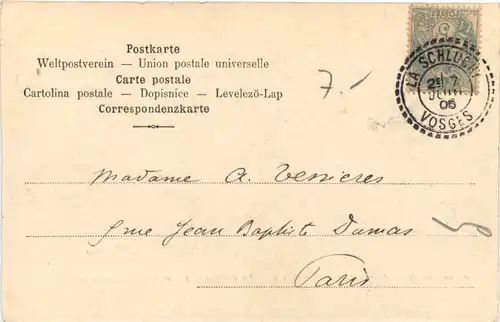 Postkarte
Weltpostverein — Union postale universelle
Carte postale
Cartolina postale — Dopisnice — Levelező-Lap
Correspondenzkarte
7.-
LA SCHLUCHT
25 7
06
VOSGES
Madame A. Venieres
rue Jean Baptiste Dumas
Paris